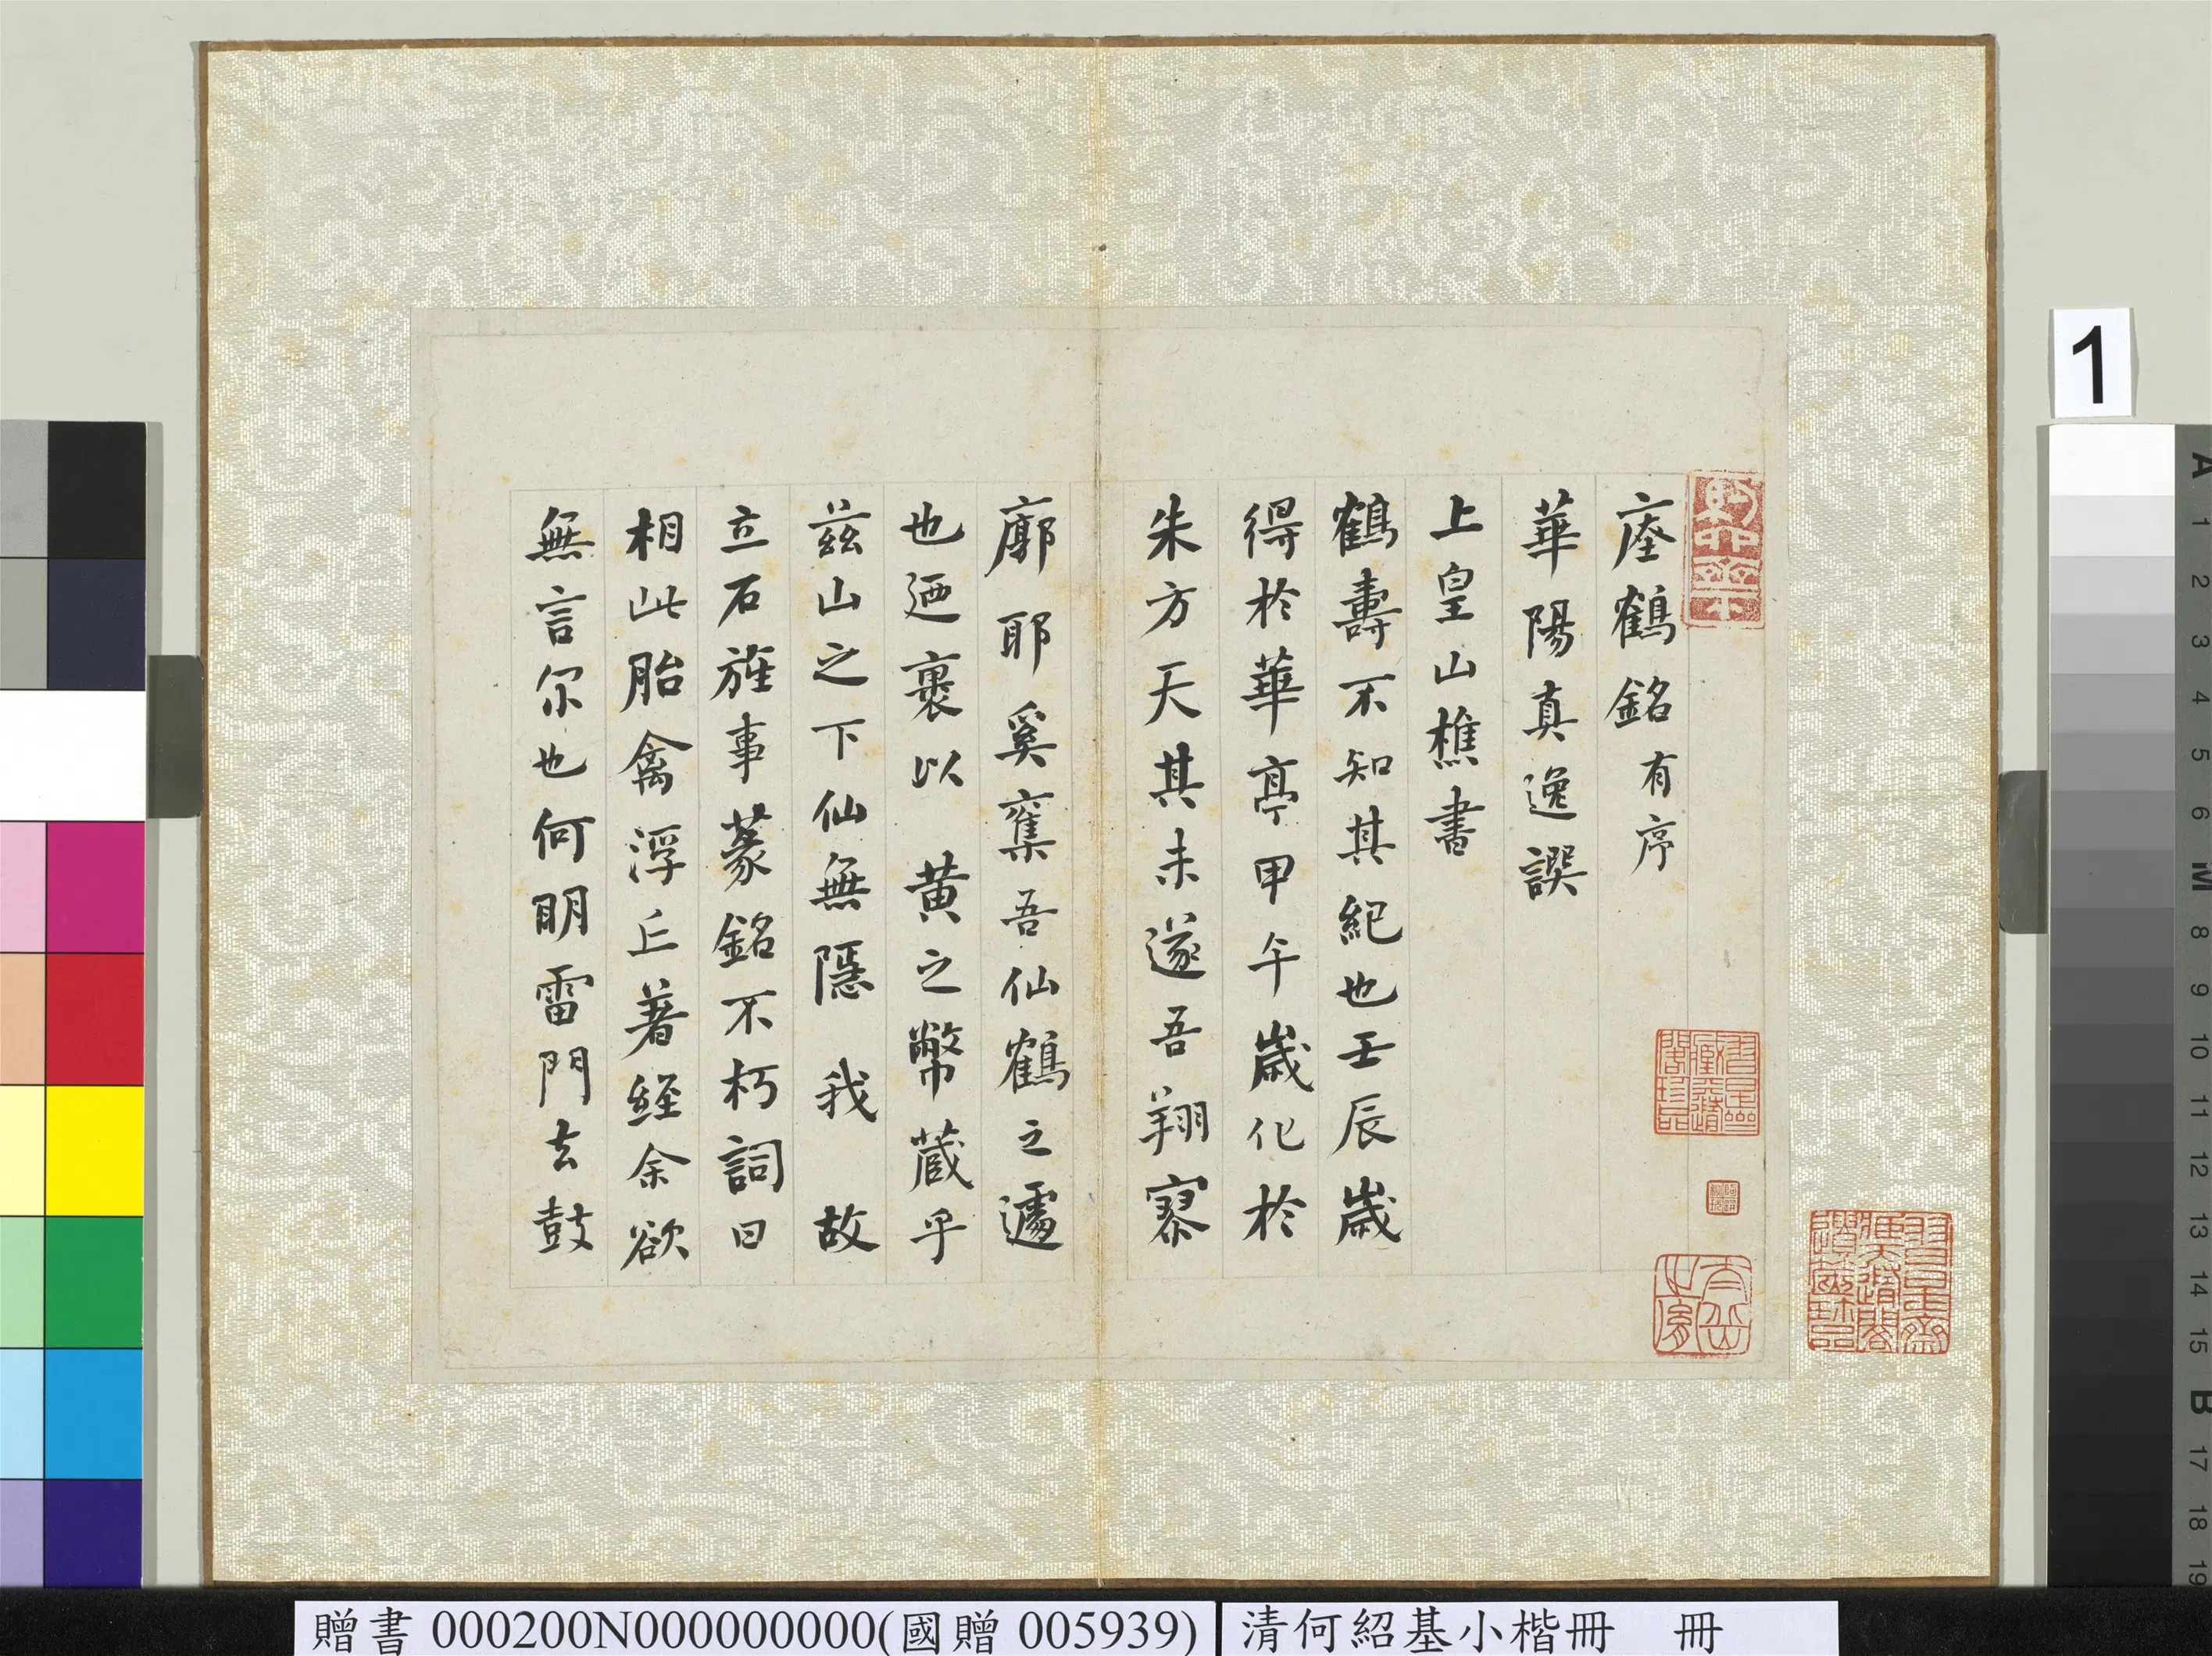 瘗鶴銘有序
華陽真逸譔
上皇山樵書
鶴壽不知其紀也壬辰歲
得於華亭甲午歲化於
朱方天其未遂吾翔寥
廓耶奚奪吾仙鶴之遽
也迺裹以 黃之幣藏乎
茲山之下仙無隱 我 故
立石旌事篆銘不朽詞曰
相此胎禽浮丘著經余欲
無言尔也何明雷門去鼓
1
A 1 2 3 4 5 6 M 8 9 10 11 12 13 14 15 B 17 18 19
贈書 000200N000000000(國贈 005939)
清何紹基小楷冊 冊